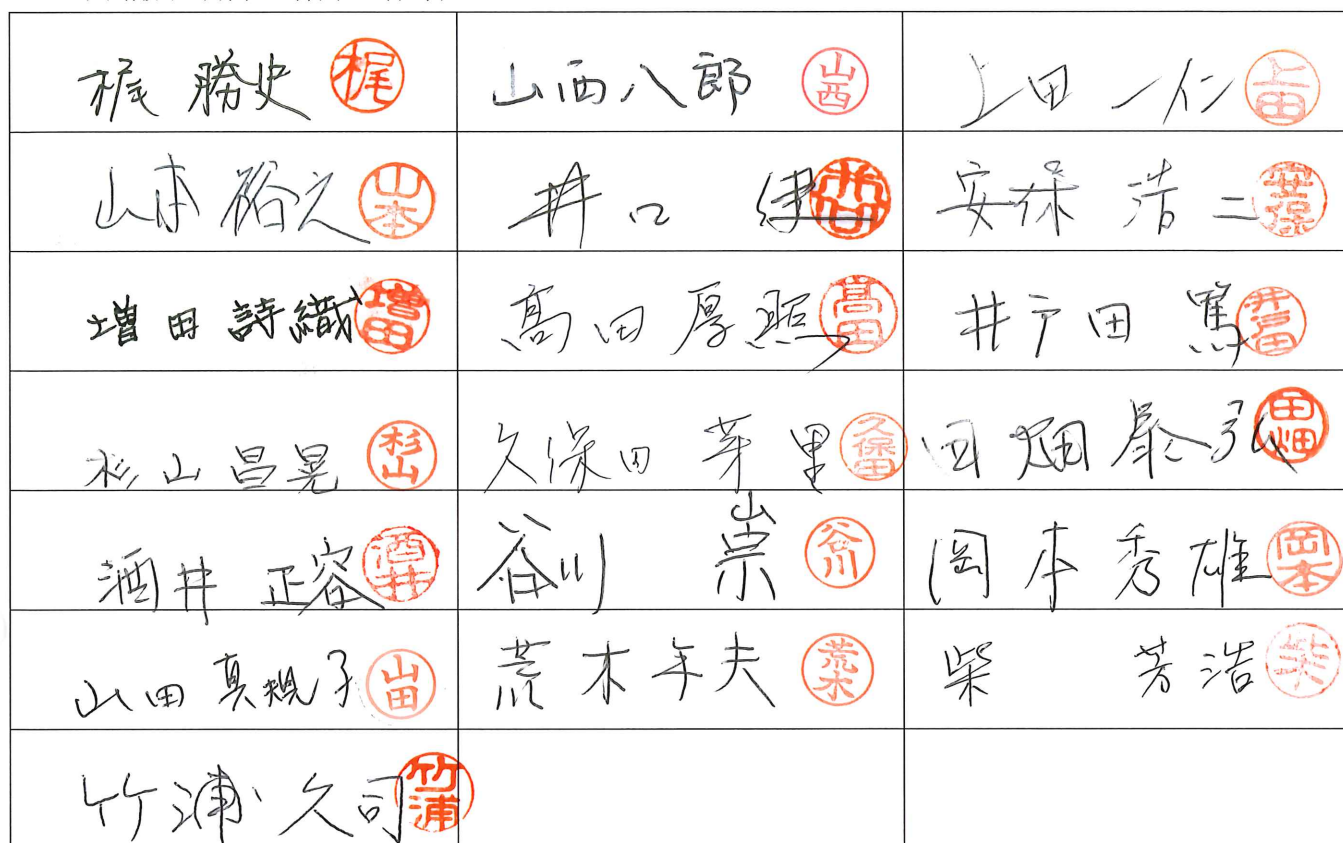 梶 勝史 梶 山西八郎 山西 上田 一仁 上田
山本 裕之 山本 井口 健 井口 安保 浩二 安保
増田 詩織 増田 髙田 厚照 髙田 井戸田 篤 井戸田
杉山 昌晃 杉山 久保田 芽里 久保田 田畑 泰弘 田畑
酒井 正容 酒井 谷川 崇 谷川 岡本 秀雄 岡本
山田 真規子 山田 荒木 年夫 荒木 柴 芳浩 柴
竹浦 久司 竹浦